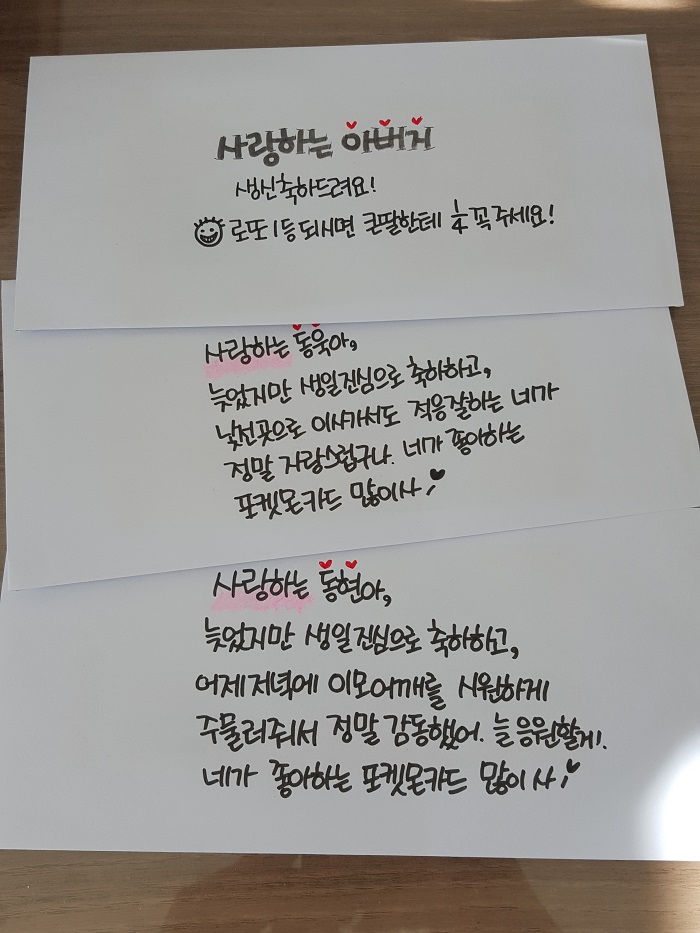 사랑하는 아버지
생신축하드려요!
로또 1등 되시면 큰딸한테 1/4 꼭 주세요!
사랑하는 동욱아,
늦었지만 생일 진심으로 축하하고,
낯선곳으로 이사가서도 적응잘하는 네가
정말 자랑스럽구나. 네가 좋아하는
포켓몬카드 많이 사!
사랑하는 동현아,
늦었지만 생일 진심으로 축하하고,
어제저녁에 이모어깨를 시원하게
주물러줘서 정말 감동했어. 늘 응원할게!.
네가 좋아하는 포켓몬카드 많이 사!